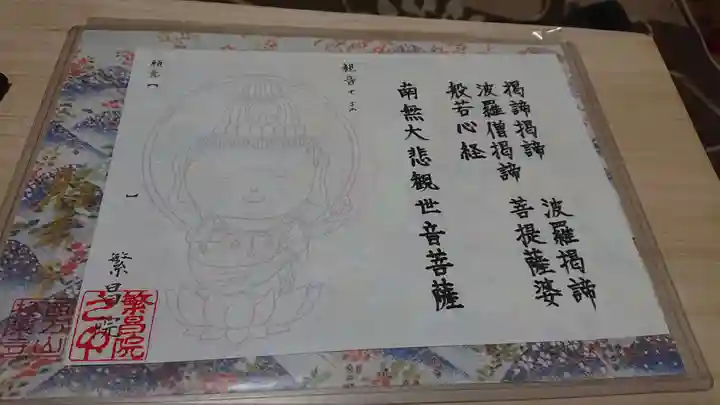 羯諦羯諦 波羅羯諦
波羅僧羯諦 菩提薩婆
般若心経
南無大悲観世音菩薩
観音
願意【 】
繁昌院
繁昌院